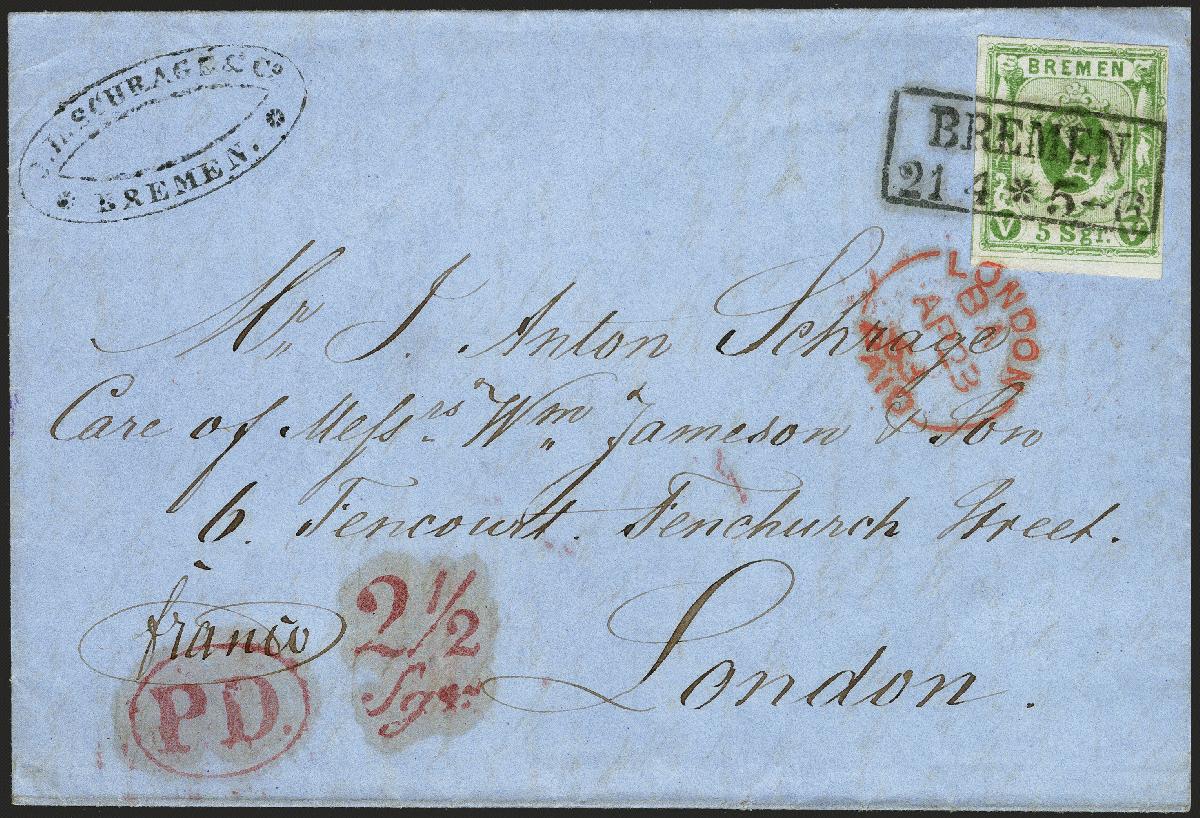 SCHRAGE & Co
BREMEN.
BREMEN
V 5 Sgr. V
BREMEN
21 4 * 5-6
LONDON
AP 23
PAID
Mr. J. Anton Schrage
Care of Messrs. Wm. Jameson & Son
6. Fencourt. Fenchurch Street.
London.
franco
P.D.
2 1/2
Sgr.